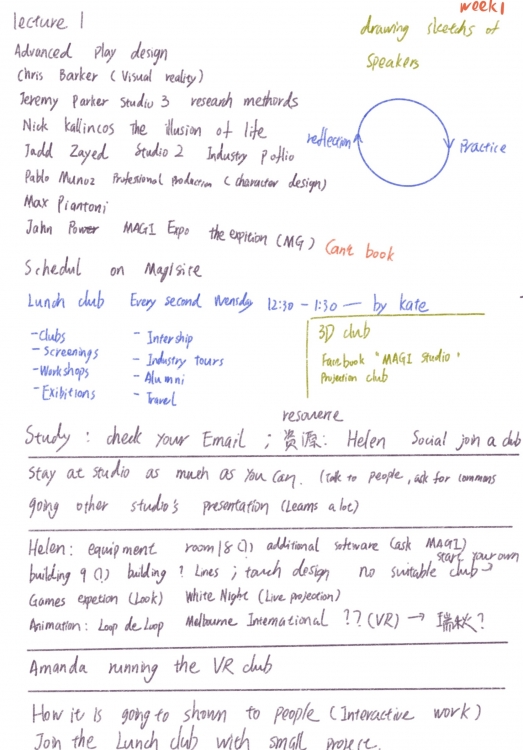 week1
lecture 1
drawing sketchs of
speakers
Advanced play design
Chris Barker (Visual reality)
Jeremy Parker Studio 3 research methords
Nick Kallincos the illusion of life
reflection
Practice
Jadd Zayed Studio 2 Industry Potlio
Pablo Munoz Professional production (character design)
Max Piantoni
Jahn Power MAGI Expo the expition (MG) Can't book
Schedul on MagIsite
Lunch club Every second Wensday 12:30 - 1:30 — by kate
-Clubs
- Screenings
-Workshops
-Exibitions
- Intership
- Industry tours
- Alumni
- Travel
3D club
Facebook "MAGI studio"
Projection club
Study : check your Email ; 资源: Helen Social join a club
Stay at studio as much as you can. (talk to people, ask for commons
going other studio's presentation (Learns a lot)
Helen: equipment room 18 (1) additional software (ask MAGI)
start your own
building 9 (1) building ? Lines ; touch design no suitable club
Games expetion (Look) White Night (Live projection)
Animation: Loop de Loop Melbourne International ?? (VR) → 瑞秋?
Amanda running the VR club
How it is going to shown to people (Interactive work)
Join the Lunch club with small project.